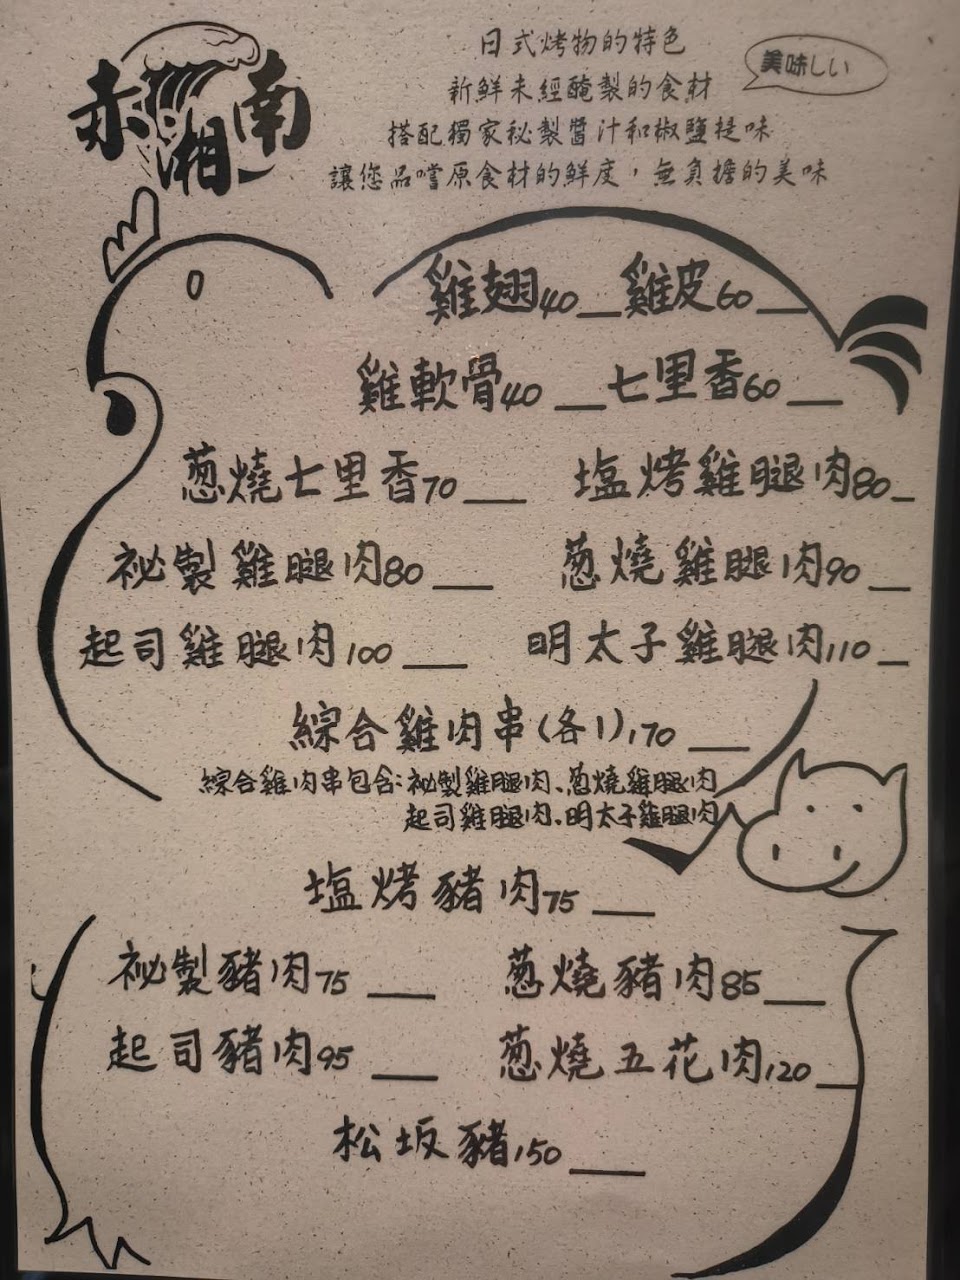 赤湘南
日式烤物的特色
美味しい
新鮮未經醃製的食材
搭配獨家秘製醬汁和椒鹽提味
讓您品嚐原食材的鮮度，無負擔的美味
雞翅40__雞皮60__
雞軟骨40__七里香60__
葱燒七里香70__ 塩烤雞腿肉80_
祕製雞腿肉80__ 葱燒雞腿肉90__
起司雞腿肉100__ 明太子雞腿肉110_
綜合雞肉串(各1)170__
綜合雞肉串包含:祕製雞腿肉、葱燒雞腿肉
起司雞腿肉、明太子雞腿肉
塩烤豬肉75__
祕製豬肉75__ 葱燒豬肉85__
起司豬肉95__ 葱燒五花肉120__
松坂豬150__